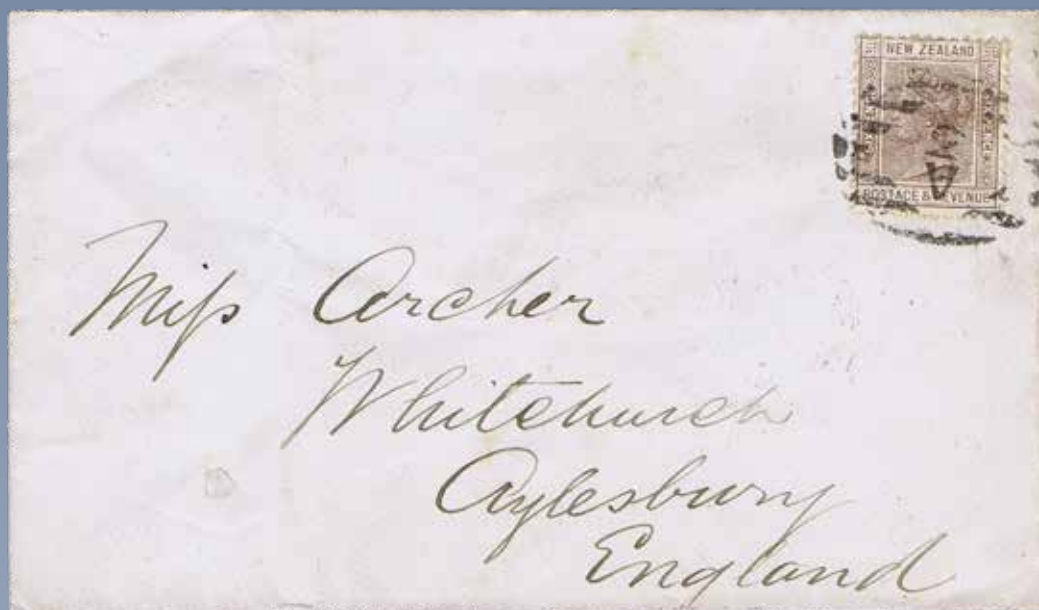 NEW ZEALAND
SIX PENCE
POSTAGE & REVENUE
Miss Archer
Whitchurch
Aylesbury
England